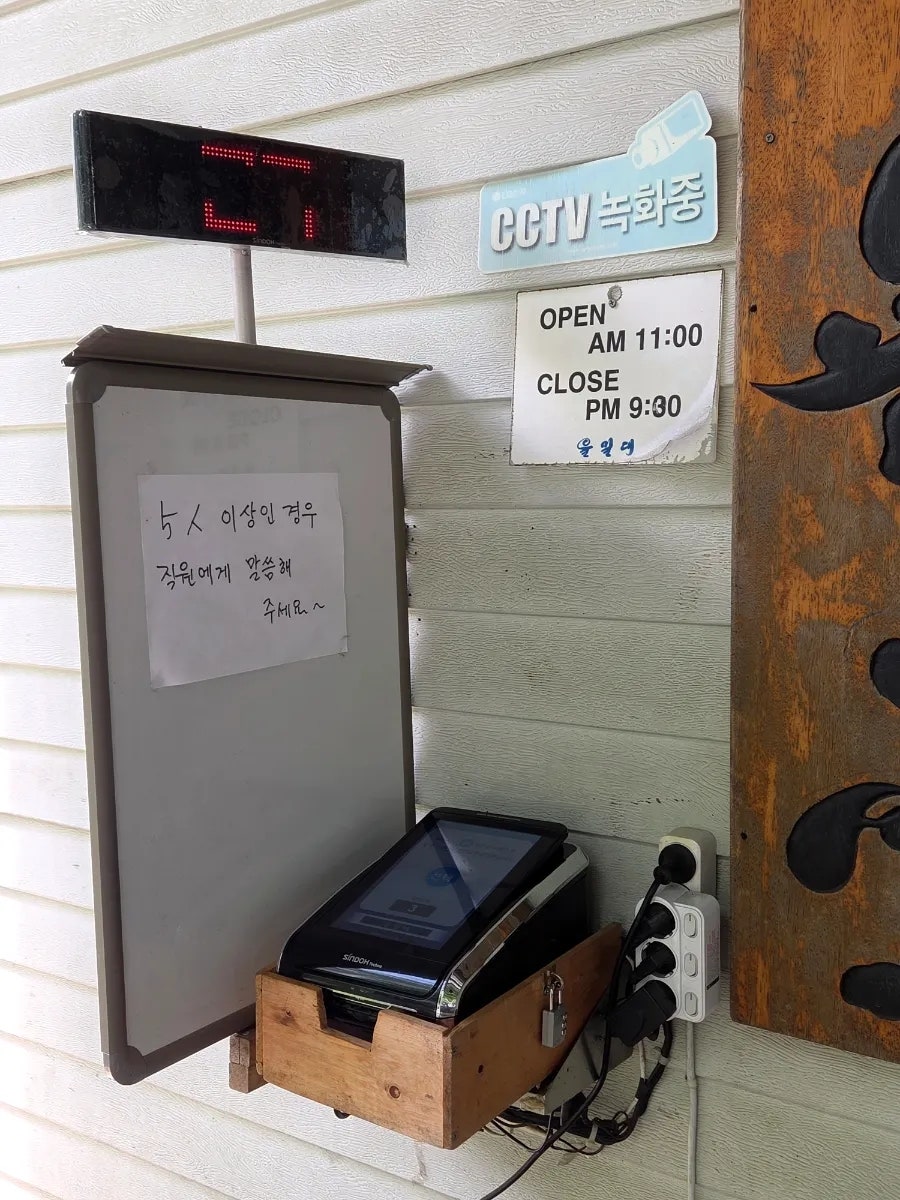 SINDOH
CCTV 녹화중
OPEN
AM 11:00
CLOSE
PM 9:30
을밀대
5人 이상인 경우
직원에게 말씀해
주세요~
3
SINDOH